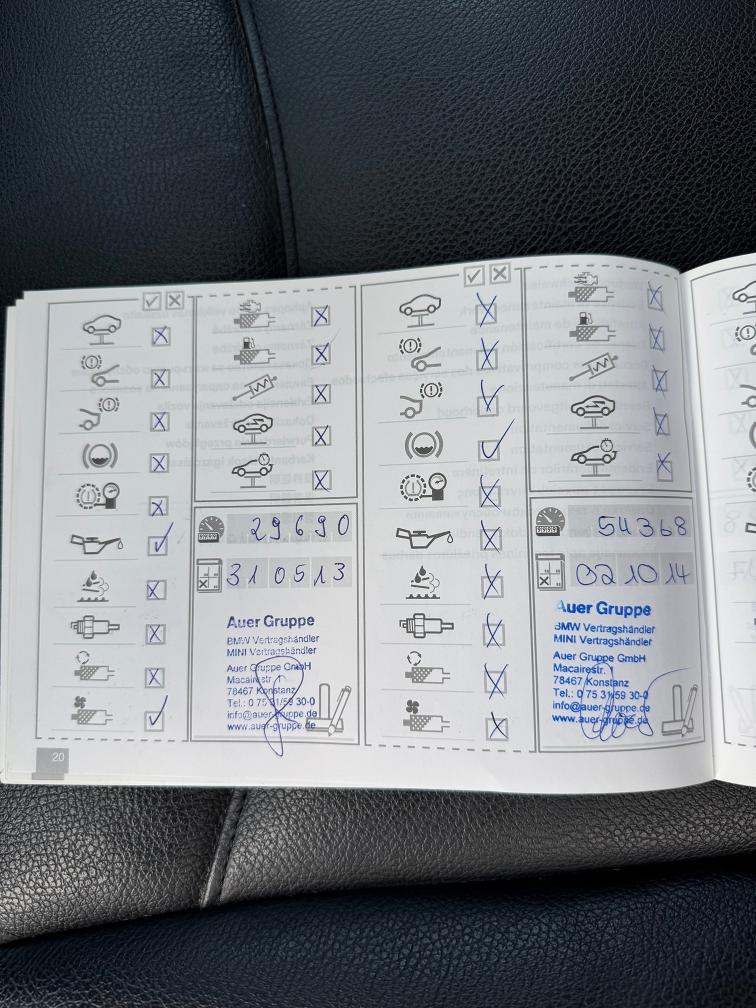 29690
310513
Auer Gruppe
BMW Vertragshändler
MINI Vertragshändler
Auer Gruppe GmbH
Macairestr. 1
78467 Konstanz
Tel.: 0 75 31/59 30-0
info@auer-gruppe.de
www.auer-gruppe.de
54368
021014
Auer Gruppe
BMW Vertragshändler
MINI Vertragshändler
Auer Gruppe GmbH
Macairestr. 1
78467 Konstanz
Tel.: 0 75 31/59 30-0
info@auer-gruppe.de
www.auer-gruppe.de
20